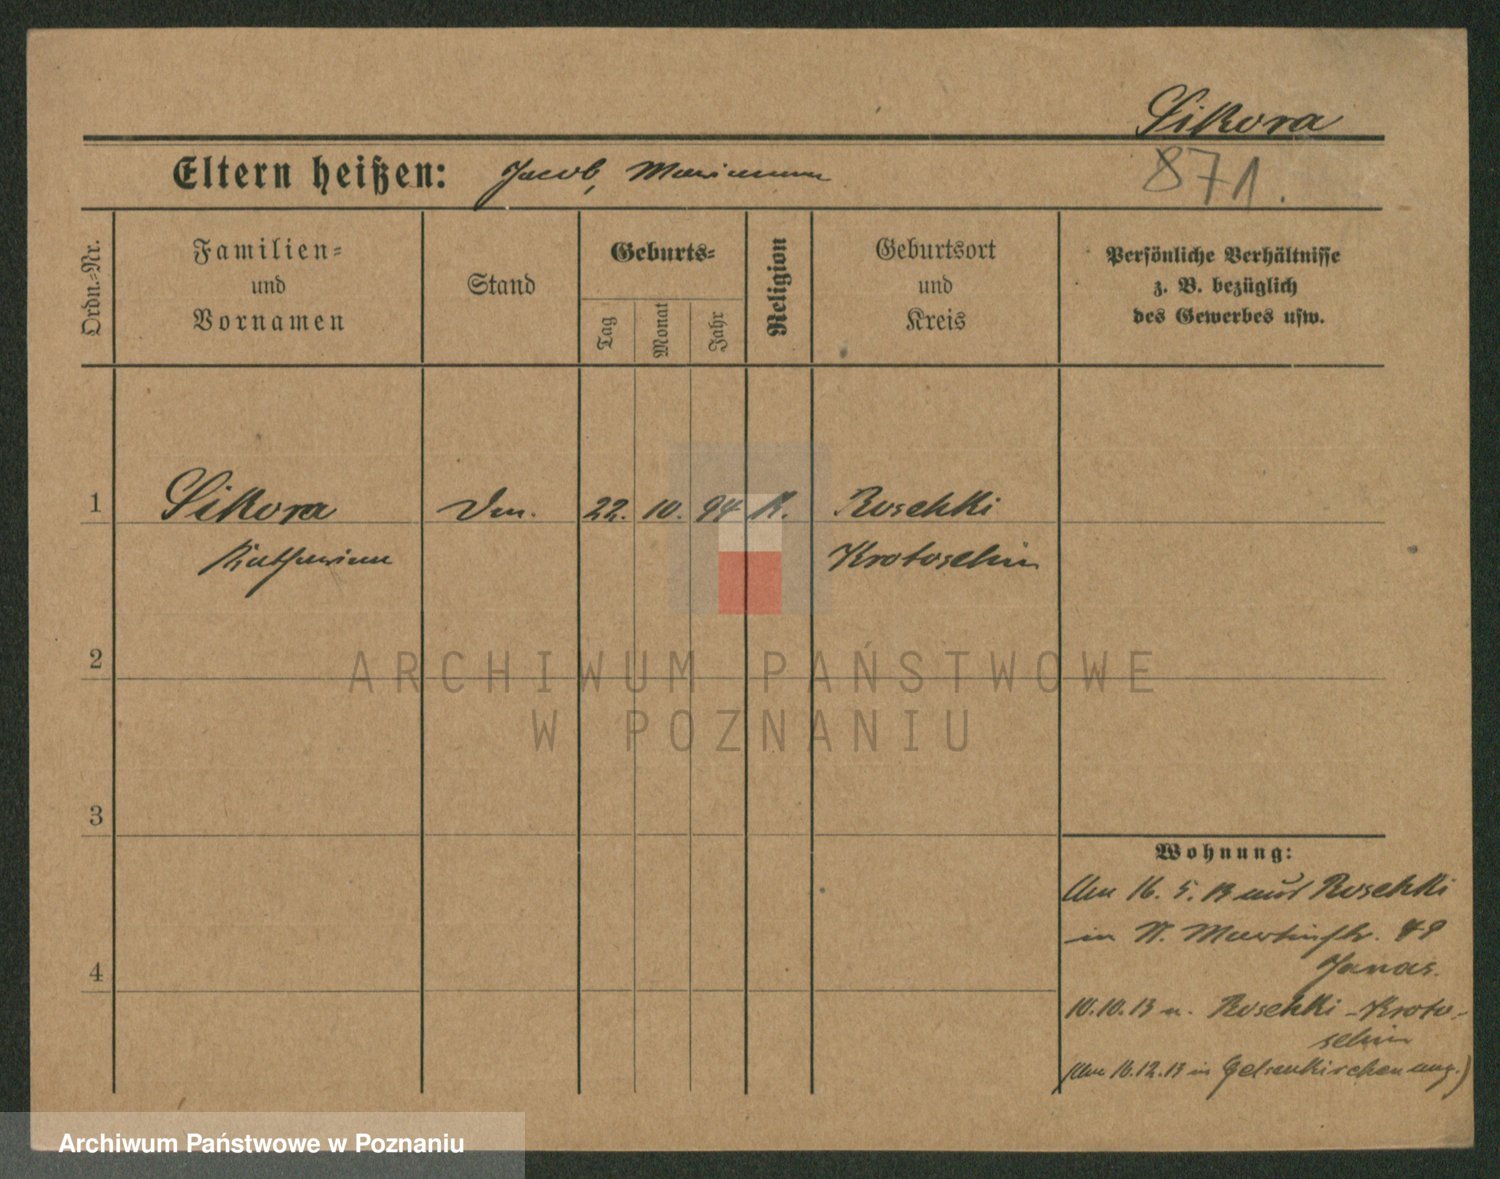 Sikora
Eltern heißen: Jacob, Marianna
871.
Ordn.-Nr.
Familien-
und
Vornamen
Stand
Geburts-
Tag
Monat
Jahr
Religion
Geburtsort
und
Kreis
Persönliche Verhältnisse
z. B. bezüglich
des Gewerbes usw.
1 Sikora 22. 10. 94 K. Roschki
Katharina Krotoschin
2
ARCHIWUM PAŃSTWOWE
W POZNANIU
3
Wohnung:
Am 16. 5. 13 aus Roschki
in St. Martinstr. 49
4
10.10.13 n. Roschki-Kroto-
schin
(Am 16.12.13 in Gelsenkirchen ang.)
Archiwum Państwowe w Poznaniu